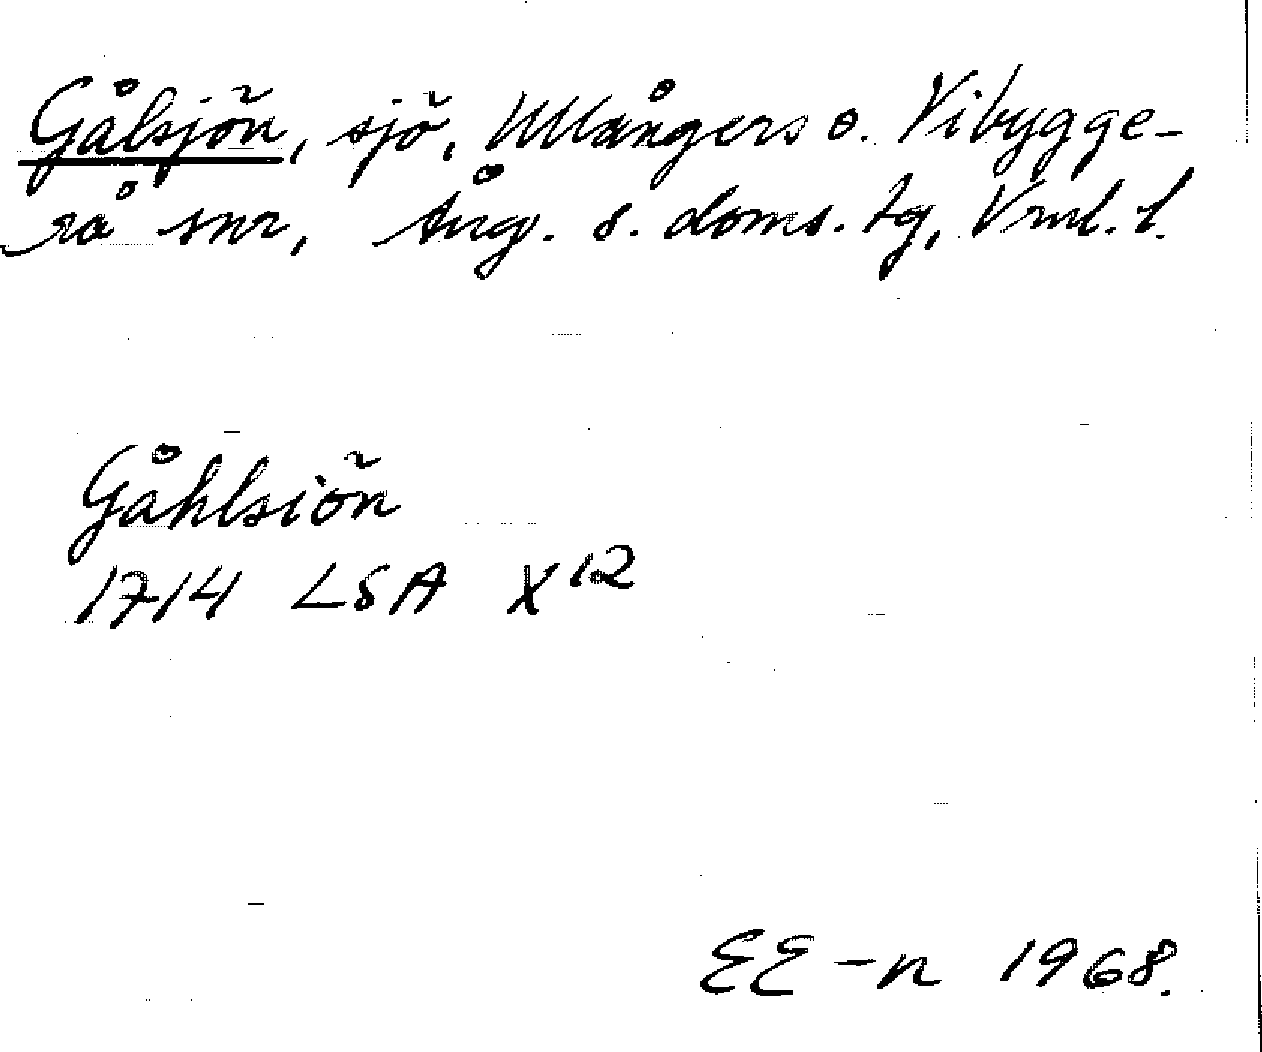 Gålsjön, sjö, Ullångers o. Vibygge-
rå snr, Ång. s. doms. tg, Vrnl. l.
Gåhlsiön
1714 LSA X12
EE-n 1968.